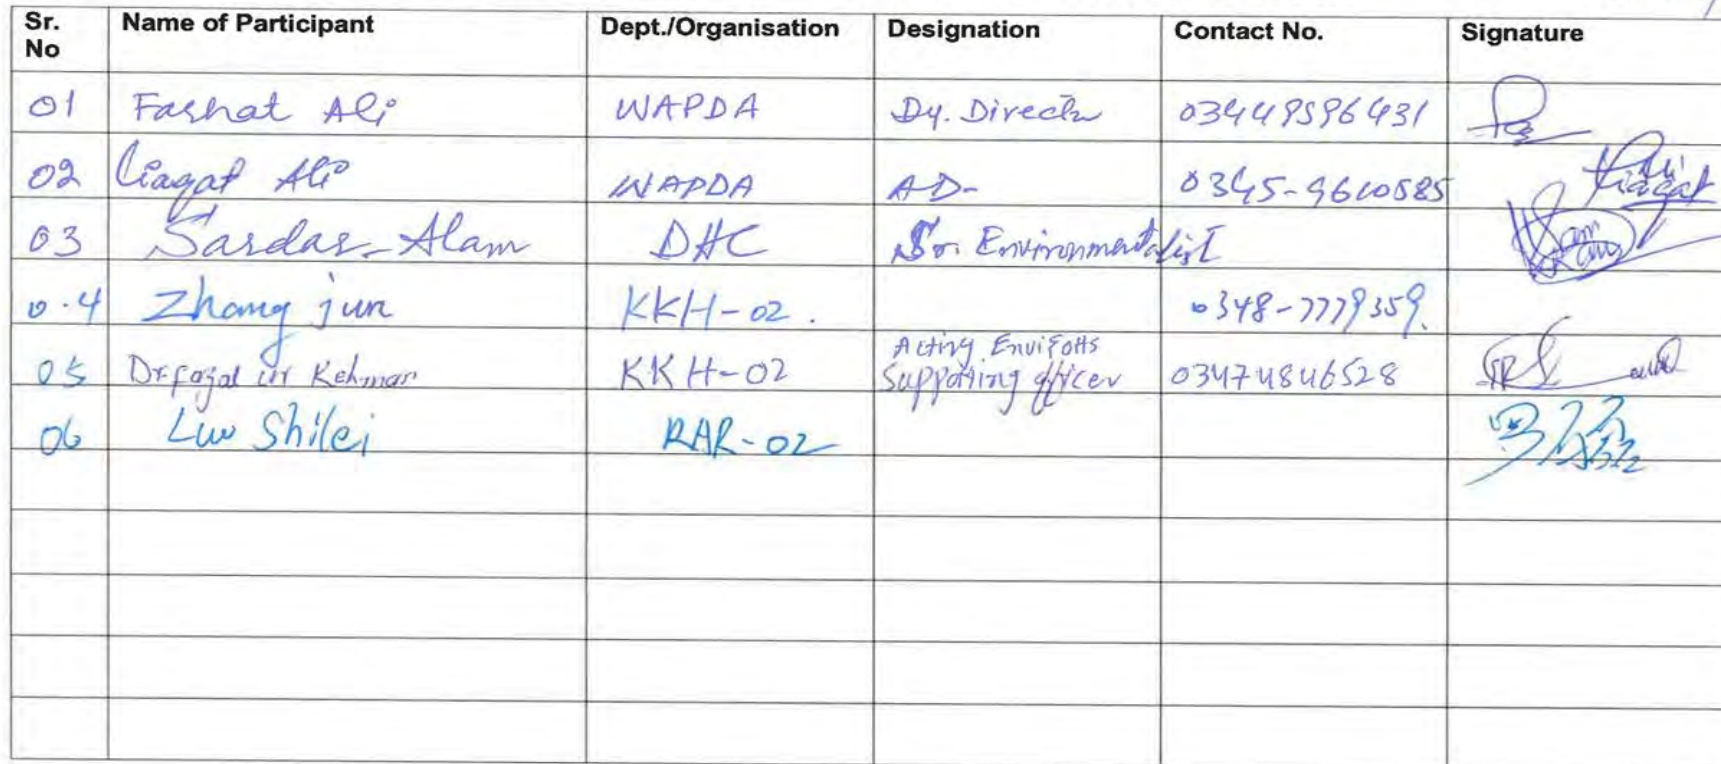 Sr. No Name of Participant Dept./Organisation Designation Contact No. Signature
01 Farhat Ali WAPDA Dy. Director
02 Liaqat Ali WAPDA AD- 0345-9610585 Liaqat
03 Sardar Alam DHC Sr. Environmentalist
0.4 Zhang jun KKH-02. 0348-7779359.
05 Dr fazal ur Rehman KKH-02 Acting Supporting officer 03474846528
06 Luo Shilei RAR-02